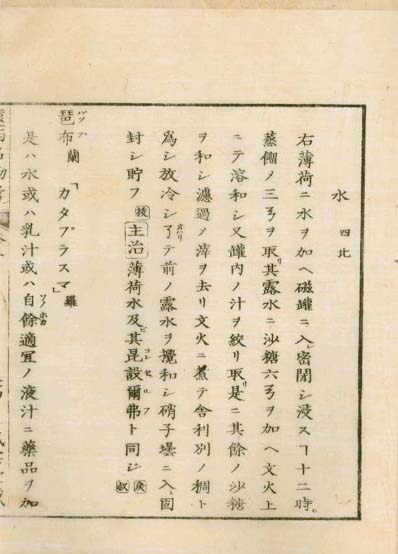 水　四比
右薄荷ニ水ヲ加ヘ磁罐ニ入レ密閉シ浸スヿ十二時。
蒸餾メ三ヲ取リ其露水ニ沙糖六ヲ加ヘ文火上
ニテ溶和シ又罐内ノ汁ヲ絞リ取リ是ニ其餘ノ沙糖
ヲ和シ濾過ノ滓ヲ去リ文火ニ煮テ舎利別ノ稠ト
為シ放冷シ了テ前ノ露水ヲ攪和シ硝子壜ニ入レ固
封シ貯フ 主治 薄荷水及ビ其昆設爾弗コンセルフト同シ
琶布蘭「カタプラスマ」羅
是ハ水或ハ乳汁或ハ自餘ソノホカ適宜ノ液汁ニ藥品ヲ加